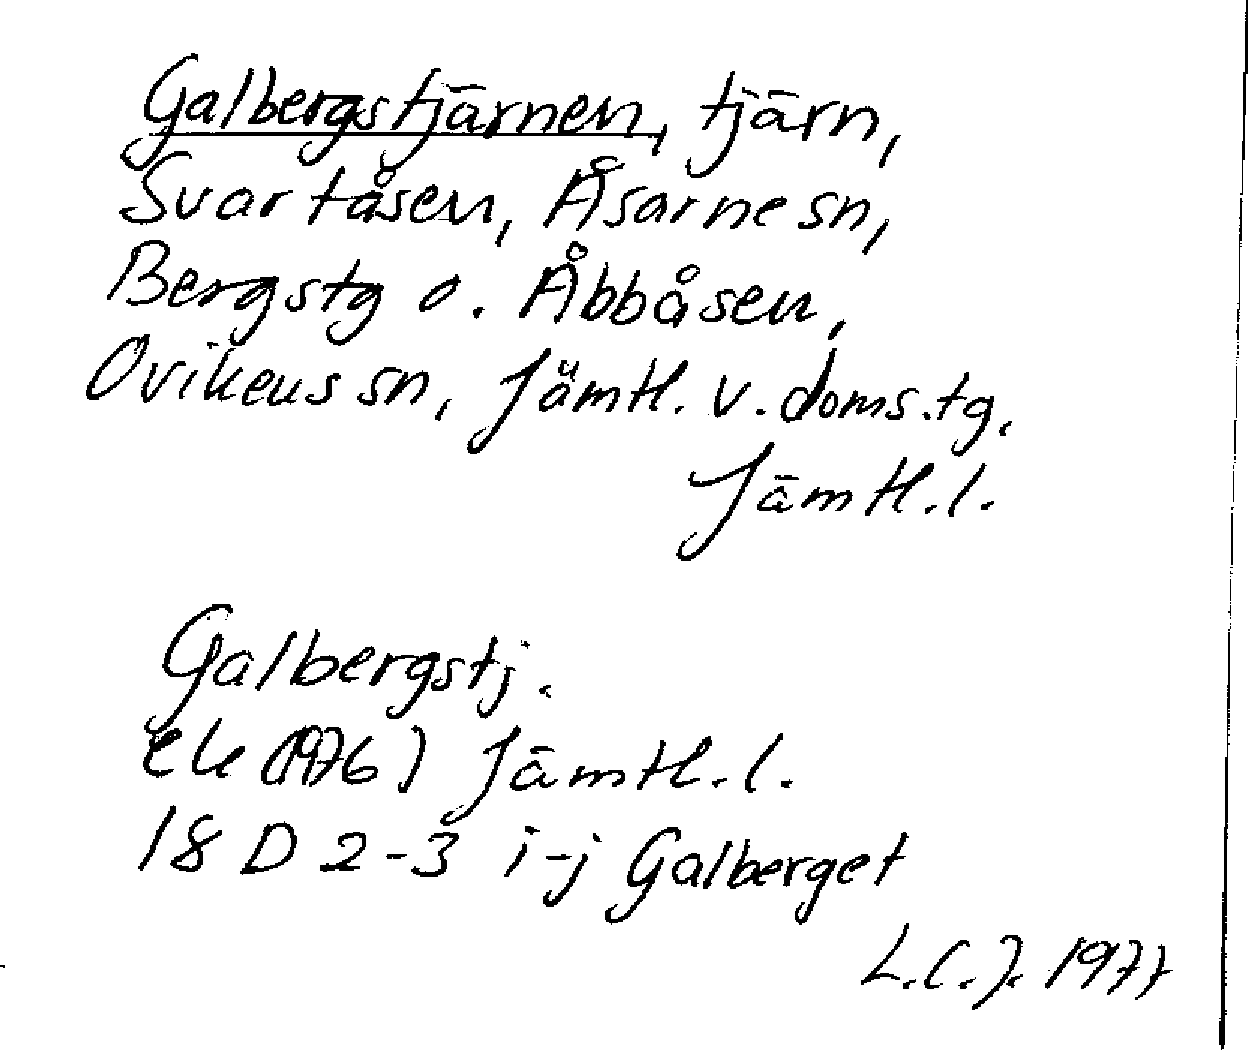 Galbergstjärnen, tjärn,
Svartåsen, Åsarne sn,
Bergstg o. Åbbåsen,
Ovikens sn, Jämtl. v. doms.tg,
Jämtl.l.
Galbergstj.
ek (1976) Jämtl.l.
18 D 2-3 i-j Galberget
L.C.J. 1977